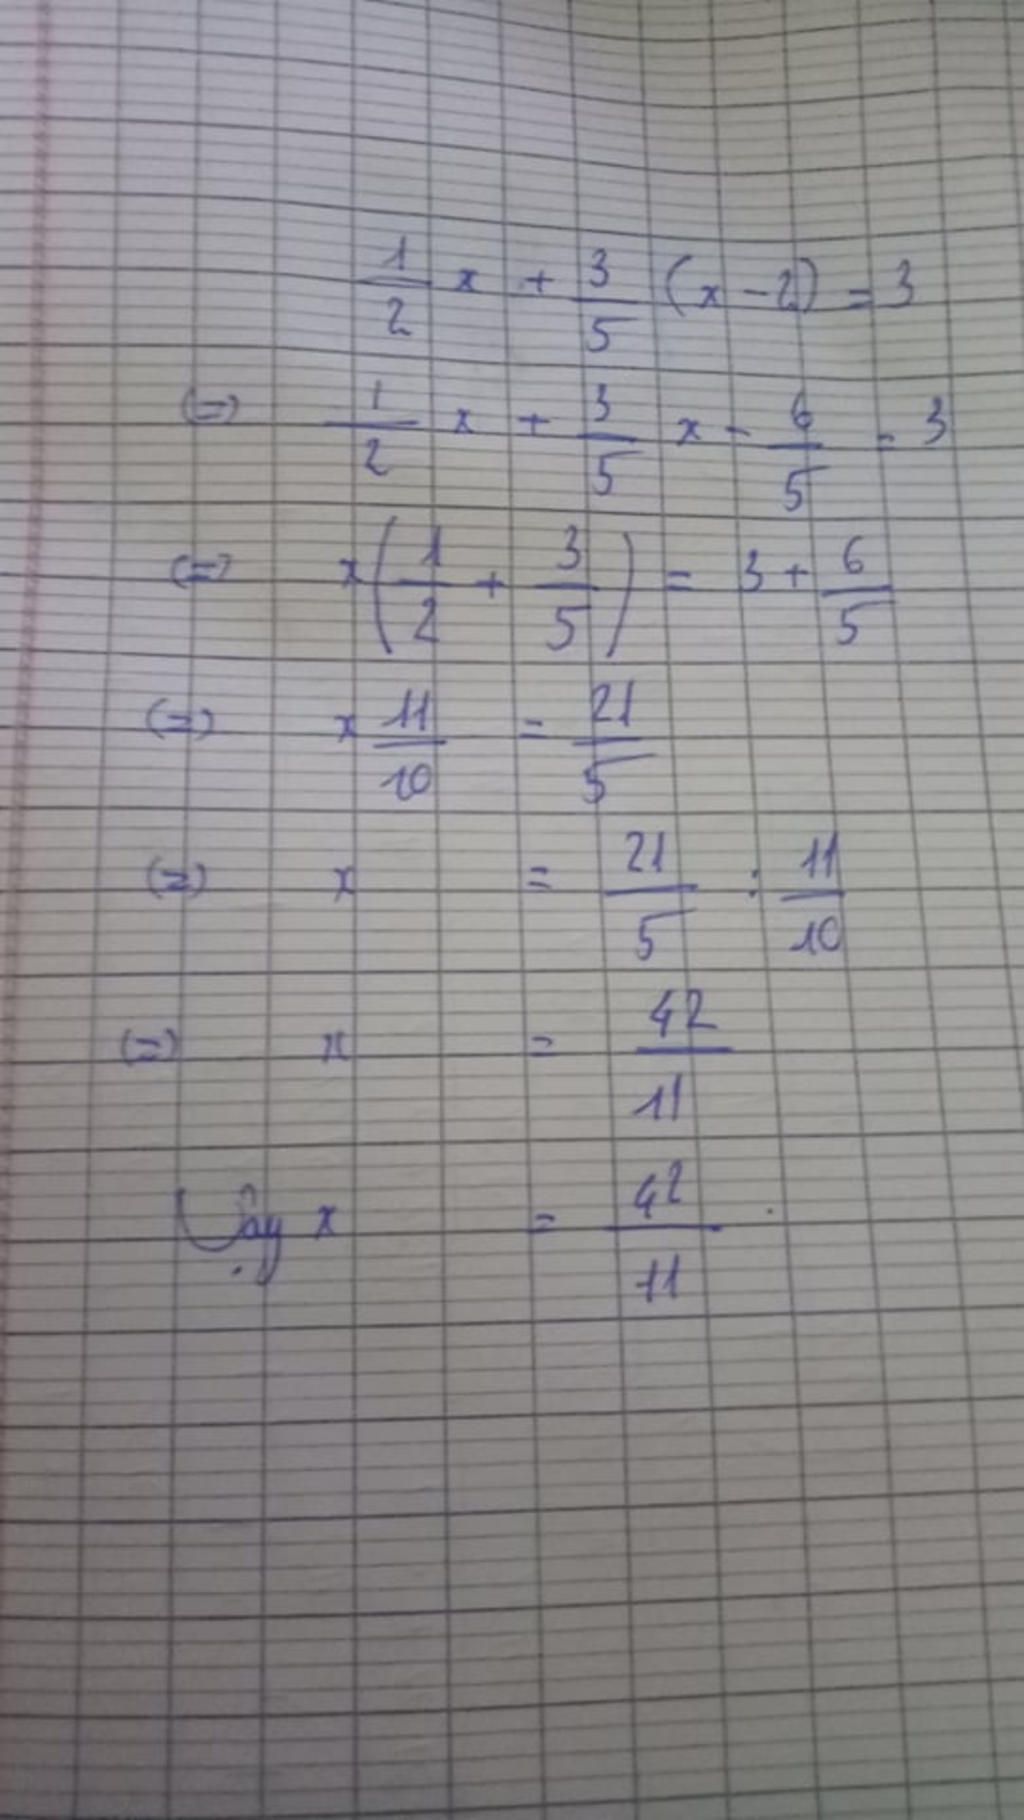 1/2 x + 3/5 (x - 2) = 3
(=) 1/2 x + 3/5 x - 6/5 = 3
(=) x (1/2 + 3/5) = 3 + 6/5
(=) x 11/10 = 21/5
(=) x = 21/5 : 11/10
(=) x = 42/11
Vậy x = 42/11.